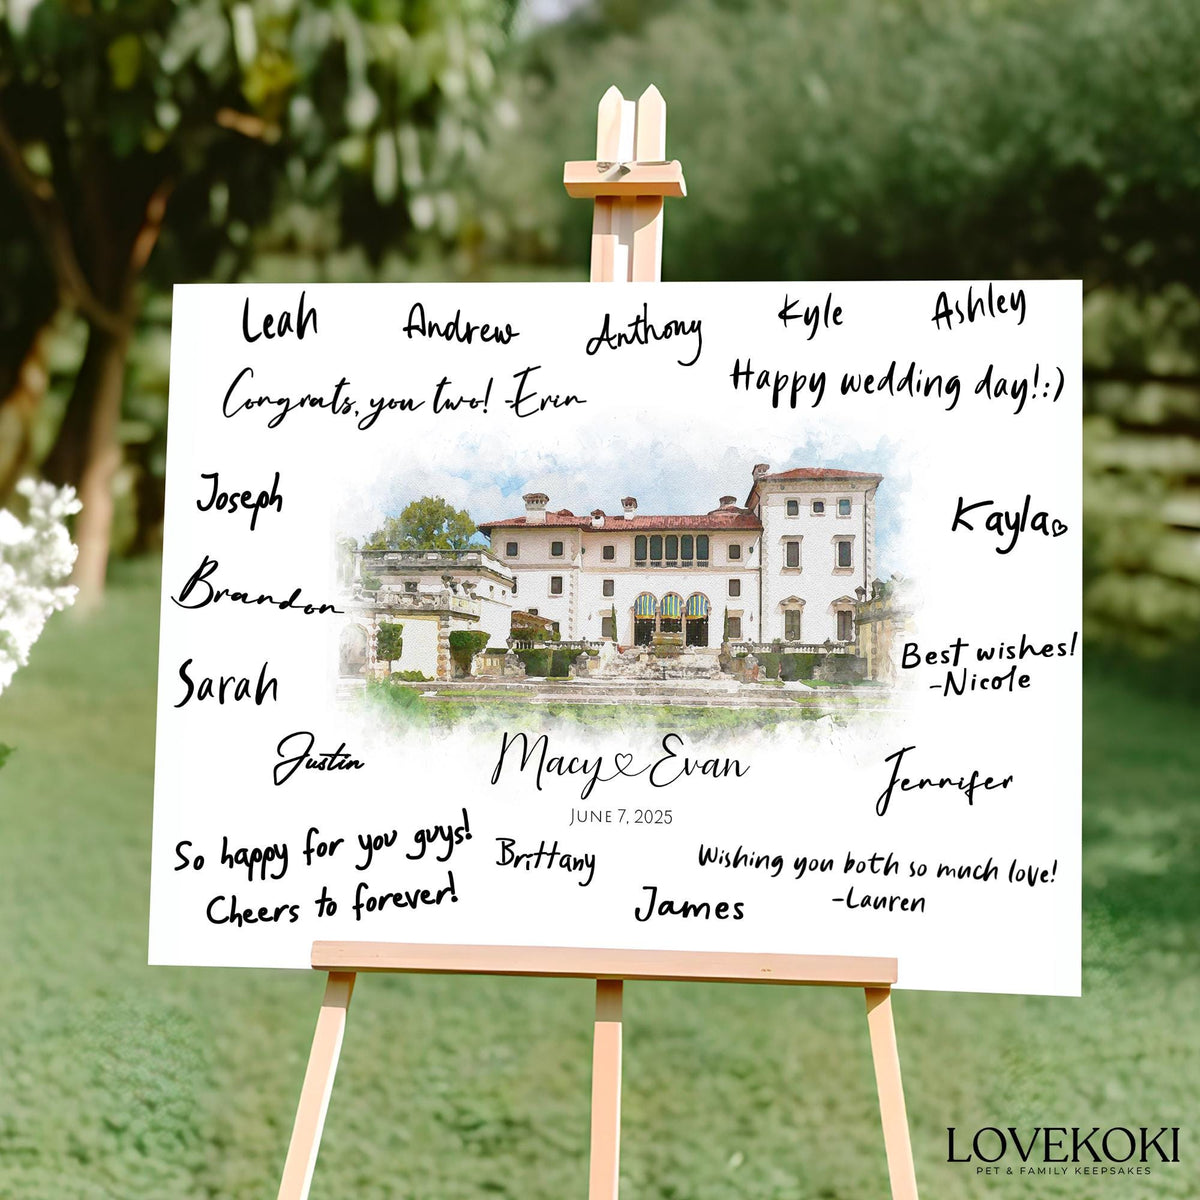 Leah Andrew Anthony Kyle Ashley
Congrats, you two! -Erin
Happy wedding day!:)
Joseph
Kayla
Brandon
Best wishes!
-Nicole
Sarah
Justin
Macy Evan
June 7, 2025
Jennifer
So happy for you guys!
Cheers to forever!
Brittany
Wishing you both so much love!
-Lauren
James
LOVEKOKI
PET & FAMILY KEEPSAKES